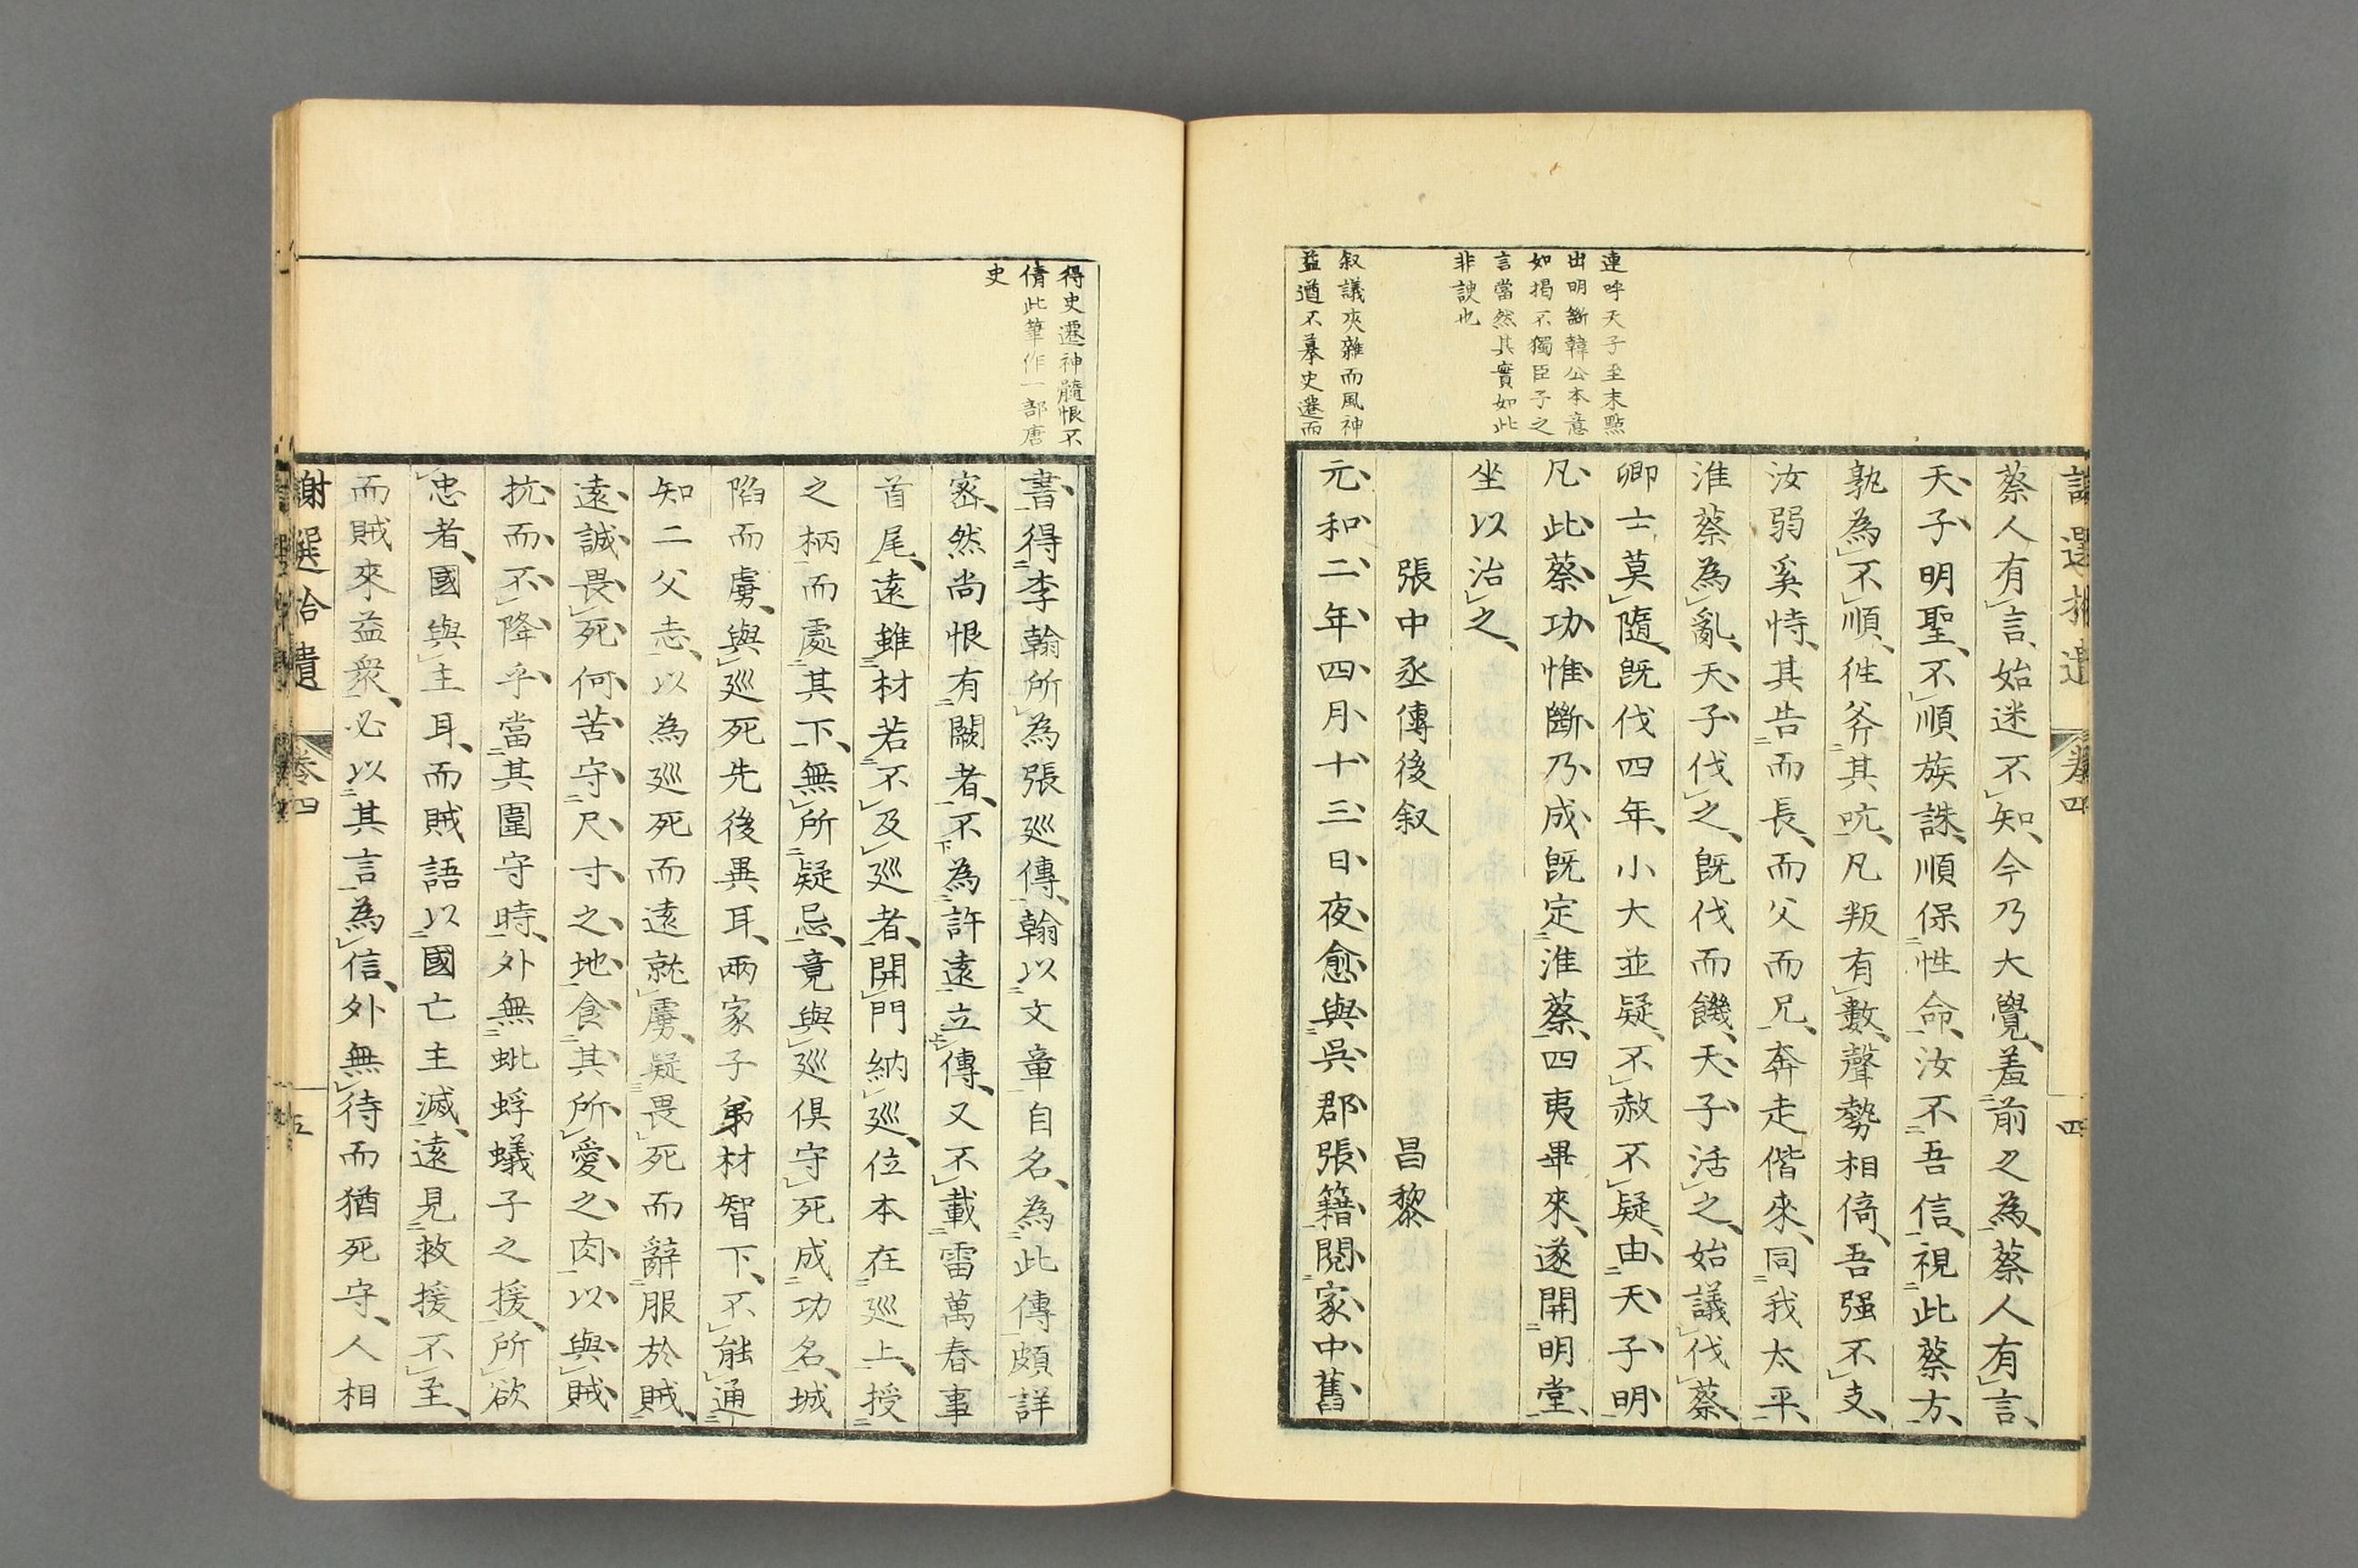 連呼天子至末點
出明斷韓公本意
如揭不獨臣子之
言當然其實如此
非諛也
叙議夾雜而風神
益遒不摹史遷而
蔡人有言始迷不知今乃大覺羞前之為蔡人有言
天子明聖不順族誅順保性命汝不吾信視此蔡方
孰為不順徃斧其吭凡叛有數聲勢相倚吾强不支
汝弱奚恃其告而長而父而兄奔走偕來同我太平
淮蔡為亂天子伐之既伐而饑天子活之始議伐蔡
卿士莫隨既伐四年小大並疑不赦不疑由天子明
凡此蔡功惟斷乃成既定淮蔡四夷畢來遂開明堂
坐以治之
張中丞傳後叙 昌黎
元和二年四月十三日夜愈與吳郡張籍閱家中舊
得史遷神髓恨不
倩此筆作一部唐
史
書得李翰所為張巡傳翰以文章自名為此傳頗詳
密然尚恨有闕者不為許遠立傳又不載雷萬春事
首尾遠雖材若不及巡者開門納巡位本在巡上授
之柄而處其下無所疑忌竟與巡俱守死成功名城
陷而虜與巡死先後異耳兩家子弟材智下不能通
知二父志以為巡死而遠就虜疑畏死而辭服於賊
遠誠畏死何苦守尺寸之地食其所愛之肉以與賊
抗而不降乎當其圍守時外無蚍蜉蟻子之援所欲
忠者國與主耳而賊語以國亡主滅遠見救援不至
而賊來益衆必以其言為信外無待而猶死守人相
謝選拾遺 卷四 五